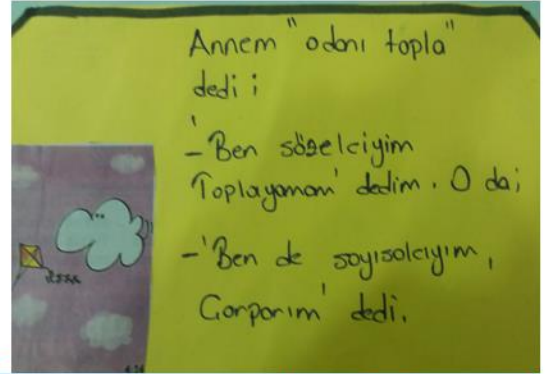 Annem "odanı topla"
dedi ;
- 'Ben sözelciyim
Toplayamam' dedim. O da;
- 'Ben de sayısalcıyım,
Çarparım' dedi.